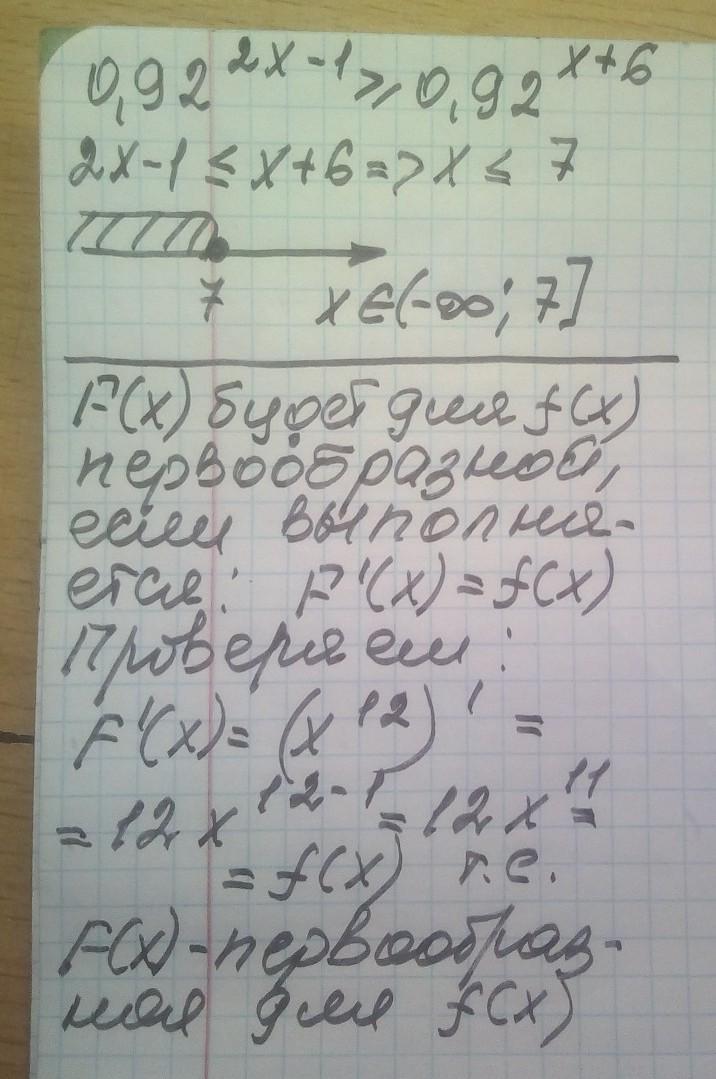 0,92^(2x-1) ≥ 0,92^(x+6)
2x-1 ≤ x+6 => x ≤ 7
7 x∈(-∞; 7]
F(x) будет для f(x)
первообразной,
если выполня-
ется: F'(x) = f(x)
Проверяем:
F'(x) = (x^12)' =
= 12x^(12-1) = 12x^11 =
= f(x) т.е.
F(x)-первообраз-
ная для f(x)